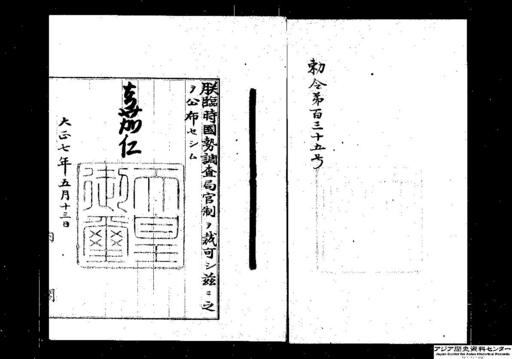 勅令第百三十五号
朕臨時国勢調査局官制ヲ裁可シ茲ニ之
ヲ公布セシム
嘉仁
天皇御璽
大正七年五月十三日
内
閣
アジア歴史資料センター
Japan Center for Asian Historical Records